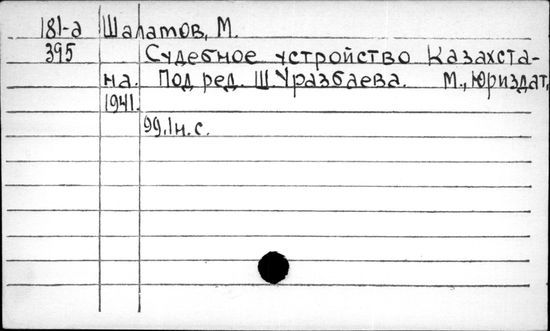 181-а Шаламов, М.
395 Судебное устройство Казахста-
на. Под ред. Ш.Уразбаева. М., Юриздат,
1941.
99,1н.с.